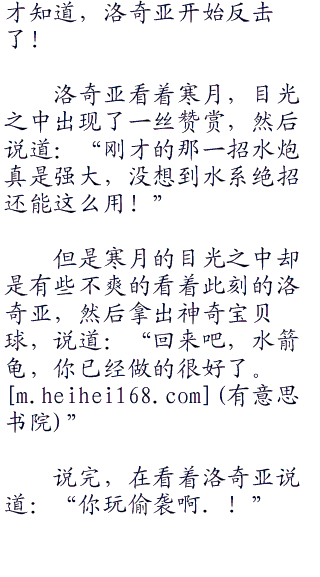 才知道，洛奇亚开始反击
了！
洛奇亚看着寒月，目光
之中出现了一丝赞赏，然后
说道：“刚才的那一招水炮
真是强大，没想到水系绝招
还能这么用！”
但是寒月的目光之中却
是有些不爽的看着此刻的洛
奇亚，然后拿出神奇宝贝
球，说道：“回来吧，水箭
龟，你已经做的很好了。
[m.heihei168.com](有意思
书院)”
说完，在看着洛奇亚说
道：“你玩偷袭啊．！”